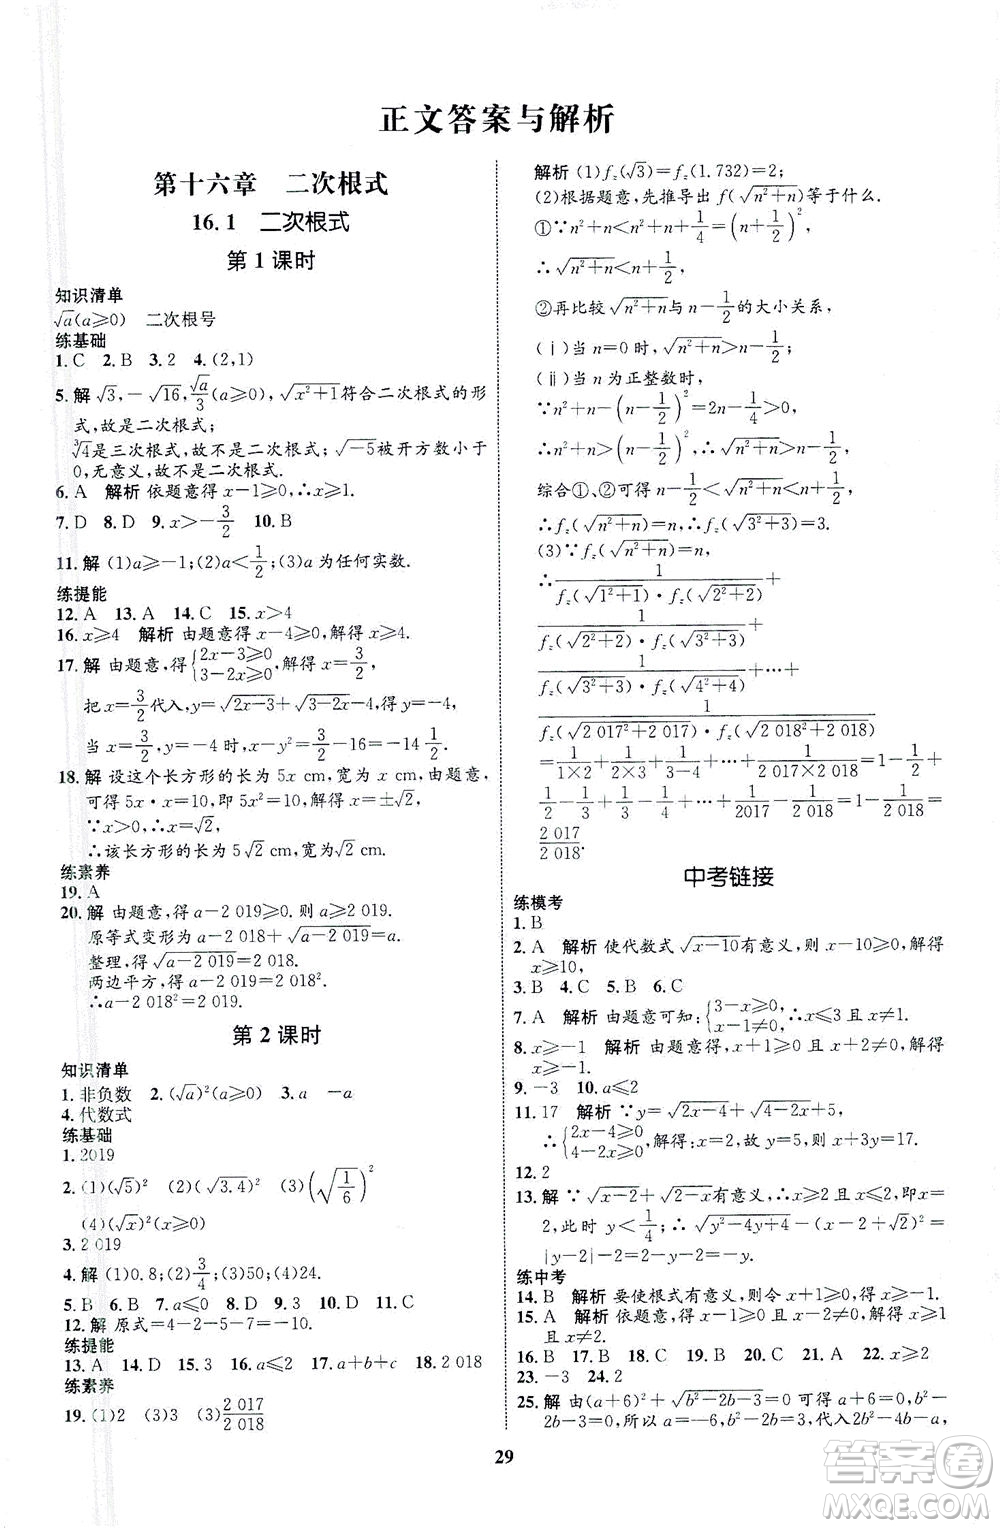 正文答案与解析
第十六章 二次根式
16.1 二次根式
第1课时
知识清单
√a(a≥0) 二次根号
练基础
1.C 2.B 3.2 4.(2,1)
5.解 √3,-√16,√a/3(a≥0),√(x²+1)符合二次根式的形
式,故是二次根式;
∛4是三次根式,故不是二次根式;√-5被开方数小于
0,无意义,故不是二次根式.
6.A 解析 依题意得x-1≥0,∴x≥1.
7.D 8.D 9.x>-3/2 10.B
11.解 (1)a≥-1;(2)a<1/2;(3)a为任何实数.
练提能
12.A 13.A 14.C 15.x>4
16.x≥4 解析 由题意得x-4≥0,解得x≥4.
17.解 由题意,得{2x-3≥0 3-2x≥0,解得x=3/2,
把x=3/2代入,得y=√(2x-3)+√(3-2x)-4=-4,
当x=3/2,y=-4时,x-y²=3/2-16=-14 1/2.
18.解 设这个长方形的长为5x cm,宽为x cm,由题意,
可得5x·x=10,即5x²=10,解得x=±√2,
∵x>0,∴x=√2,
∴该长方形的长为5√2 cm,宽为√2 cm.
练素养
19.A
20.解 由题意,得a-2 019≥0.解得a≥2 019.
原等式变形为a-2 018+√(a-2 019)=a.
整理,得√(a-2 019)=2 018.
两边平方,得a-2 019=2 018².
∴a-2 018²=2 019.
第2课时
知识清单
1.非负数 2.(√a)²(a≥0) 3.a -a
4.代数式
练基础
1.2019
2.(1)(√5)² (2)(√3.4)² (3)(√1/6)²
(4)(√x)²(x≥0)
3.2 019
4.解 (1)0.8;(2)3/4;(3)250;(4)24.
5.B 6.B 7.a≤0 8.D 9.C 10.B 11.C
12.解 原式=4-2-5-7=-10.
练提能
13.A 14.D 15.3 16.a≤2 17.a+b+c 18.2 018
练素养
19.(1)2 (3)3 (3)2 017/2 018
解析 (1)f_z(√3)=f_z(1.732)=2;
(2)根据题意,先推导出f(√(n²+n))等于什么.
①∵n²+n<n²+n+1/4=(n+1/2)²,
∴√(n²+n)<n+1/2,
②再比较√(n²+n)与n-1/2的大小关系,
(ⅰ)当n=0时,√(n²+n)>n-1/2;
(ⅱ)当n为正整数时,
∵n²+n-(n-1/2)²=2n-1/4>0,
∴n²+n>(n-1/2)²,∴√(n²+n)>n-1/2,
综合①、②可得n-1/2<√(n²+n)<n+1/2,
∴f_z(√(n²+n))=n,∴f_z(√(3²+3))=3.
(3)∵f_z(√(n²+n))=n,
∴1/(f_z(√(1²+1))·f_z(√(2²+2)))+
1/(f_z(√(2²+2))·f_z(√(3²+3)))+
1/(f_z(√(3²+3))·f_z(√(4²+4)))+…+
1/(f_z(√(2 017²+2 017))·f_z(√(2 018²+2 018)))
=1/(1×2)+1/(2×3)+1/(3-4)+…+1/(2 017×2 018)=1-
1/2+1/2-1/3+1/3-1/4+…+1/2 017-1/2 018=1-1/2 018=
2 017/2 018.
中考链接
练模考
1.B
2.A 解析 使代数式√(x-10)有意义,则x-10≥0,解得
x≥10,
3.B 4.C 5.B 6.C
7.A 解析 由题意可知:{3-x≥0 x-1≠0,∴x≤3且x≠1.
8.x≥-1 解析 由题意得x+1≥0且x+2≠0,解得
x≥-1.
9.-3 10.a≤2
11.17 解析 ∵y=√(2x-4)+√(4-2x)+5,
∴{2x-4≥0 4-2x≥0,解得:x=2,故y=5,∴x+3y=17.
12.2
13.解 ∵√(x-2)+√(2-x)有意义,∴x≥2且x≤2,即x=
2,此时y<1/4;∴√(y²-4y+4)-(x-2+√2)²=
|y-2|-2=2-y-2=-y.
练中考
14.B 解析 要使根式有意义,则令x+1≥0,得x≥-1.
15.A 解析 依题意,得x-1≥0且x-2≠0,解得
x≥1且x≠2.
16.B 17.D 18.B 19.A 20.C 21.A 22.x≥2
23.-3 24.x≥1
25.解 由(a+6)²+√(b²-2b-3)=0可得(a+6)²=0,
b²-2b-3=0,所以a=-6,b²-2b=3,代入2b²-4b-a,
29
答案圈
MXQE.COM